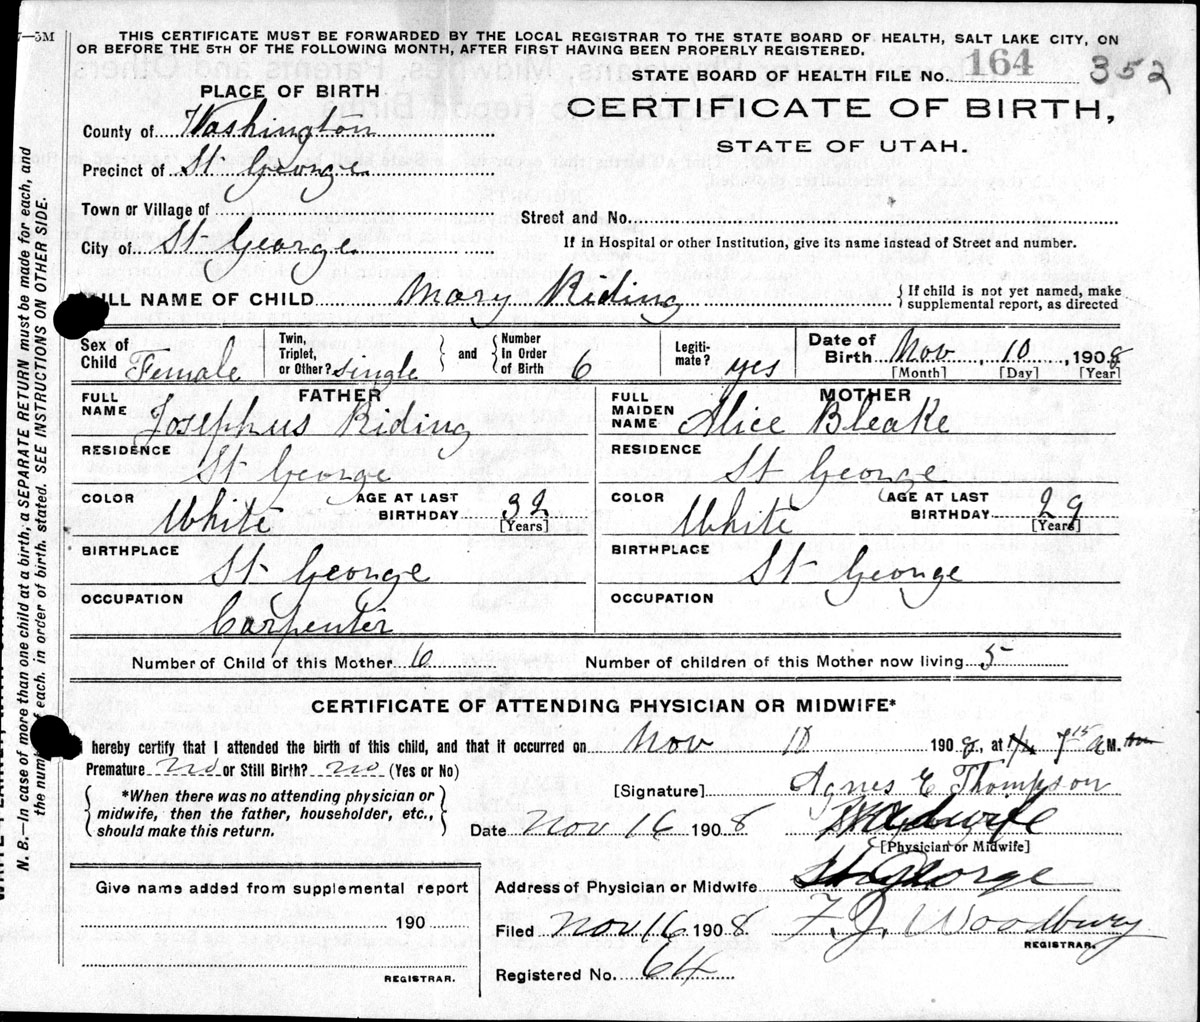 7—5M
THIS CERTIFICATE MUST BE FORWARDED BY THE LOCAL REGISTRAR TO THE STATE BOARD OF HEALTH, SALT LAKE CITY, ON
OR BEFORE THE 5TH OF THE FOLLOWING MONTH, AFTER FIRST HAVING BEEN PROPERLY REGISTERED.
STATE BOARD OF HEALTH FILE No. 164 352
PLACE OF BIRTH
CERTIFICATE OF BIRTH,
STATE OF UTAH.
County of Washington
Precinct of St George
Town or Village of
Street and No.
City of St George
If in Hospital or other Institution, give its name instead of Street and number.
FULL NAME OF CHILD Mary Riding
If child is not yet named, make
supplemental report, as directed
Sex of
Child Female
Twin,
Triplet,
or Other? single
and
Number
In Order
of Birth 6
Legiti-
mate? yes
Date of
Birth Nov 10, 1908
[Month] [Day] [Year]
FATHER
FULL
NAME Josephus Riding
MOTHER
FULL
MAIDEN
NAME Alice Bleake
RESIDENCE
St George
RESIDENCE
St George
COLOR
White
AGE AT LAST
BIRTHDAY 32
[Years]
COLOR
White
AGE AT LAST
BIRTHDAY 29
[Years]
BIRTHPLACE
St George
BIRTHPLACE
St George
OCCUPATION
Carpenter
OCCUPATION
Number of Child of this Mother 6
Number of children of this Mother now living 5
CERTIFICATE OF ATTENDING PHYSICIAN OR MIDWIFE*
I hereby certify that I attended the birth of this child, and that it occurred on Nov 10 1908, at 7 15 a M.
Premature no or Still Birth? no (Yes or No)
*When there was no attending physician or
midwife, then the father, householder, etc.,
should make this return.
[Signature] Agnes E Thompson
Date Nov 16 1908 Midwife
[Physician or Midwife]
Give name added from supplemental report
190
REGISTRAR.
Address of Physician or Midwife St George
Filed Nov 16 1908 F. J. Woodbury
REGISTRAR.
Registered No. 64
N. B.—In case of more than one child at a birth, a SEPARATE RETURN must be made for each, and
the number of each, in order of birth, stated. SEE INSTRUCTIONS ON OTHER SIDE.